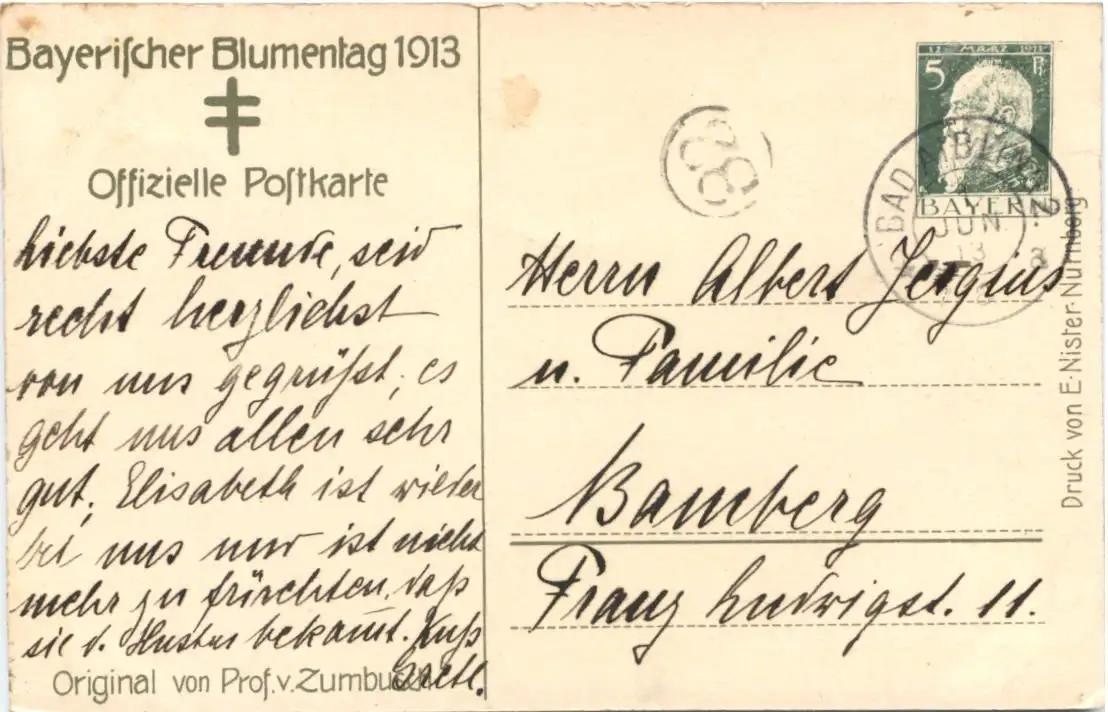 Bayeriſcher Blumentag 1913
Offizielle Poſtkarte
Liebste Freunde, seid
recht herzlichst
von uns gegrüßt, es
geht uns allen sehr
gut. Elisabeth ist wieder
bei uns und ist nicht
mehr zu fürchten, daß
sie d. Husten bekommt. Kuß
Gretl.
Original von Prof. v. Zumbusch
88
12 MÄRZ 1911
5 Pf
BAYERN
BAD AIBLING 2
JUN.
13
Herrn Albert
u. Familie
Bamberg
Franz Ludwigst. 11.
Druck von E. Nister Nürnberg